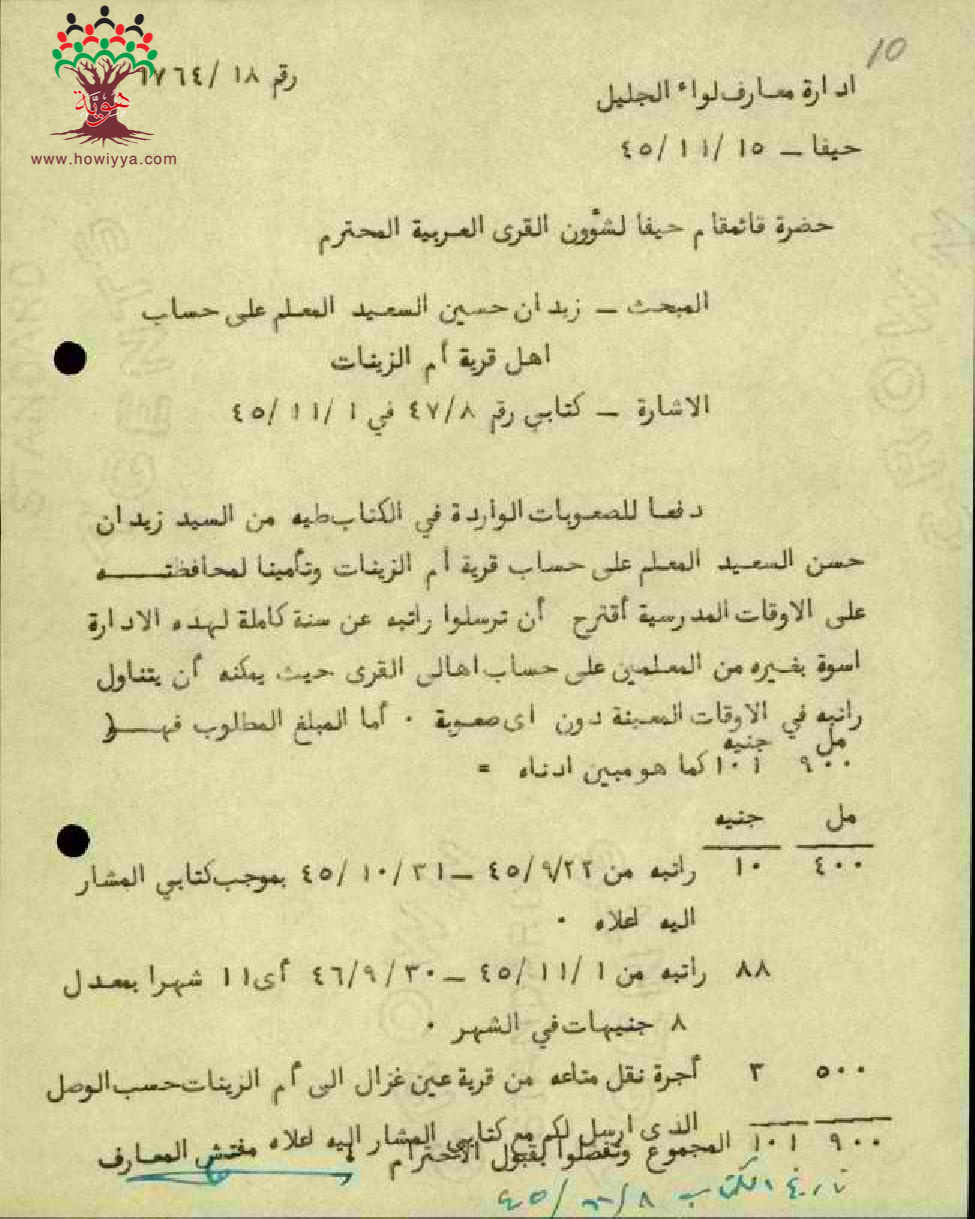 10
رقم ١٨ /١٧٦٤
هوية
www.howiyya.com
ادارة معارف لواء الجليل
حيفا – ١٥ /١١ /٤٥
حضرة قائمقام حيفا لشؤون القرى العربية المحترم
المبحث – زيدان حسين السعيد المعلم على حساب
اهل قرية أم الزينات
الاشارة – كتابي رقم ٤٧/٨ في ١ /١١ /٤٥
دفعا للصعوبات الواردة في الكتاب طيه من السيد زيدان
حسن السعيد المعلم على حساب قرية أم الزينات وتأمينا لمحافظته
على الاوقات المدرسية أقترح أن ترسلوا راتبه عن سنة كاملة لهذه الادارة
اسوة بغيره من المعلمين على حساب اهالى القرى حيث يمكنه أن يتناول
راتبه في الاوقات المعينة دون اى صعوبة . أما المبلغ المطلوب فهو
مل جنيه
٩٠٠ ١٠١ كما هو مبين ادناه =
مل جنيه
٤٠٠ ١٠ راتبه من ٤٥/٩/٢٢ – ٣١ /١٠ /٤٥ بموجب كتابي المشار
اليه اعلاه .
٨٨ راتبه من ١ /١١ /٤٥ – ٣٠ /٤٦/٩ أى ١١ شهرا بمعدل
٨ جنيهات في الشهر .
٥٠٠ ٣ أجرة نقل متاعه من قرية عين غزال الى أم الزينات حسب الوصل
الذى ارسل لكم مع كتابي المشار اليه اعلاه
٩٠٠ ١٠١ المجموع وتفضلوا بقبول الاحترام مفتش المعارف
تاريخ الكتاب